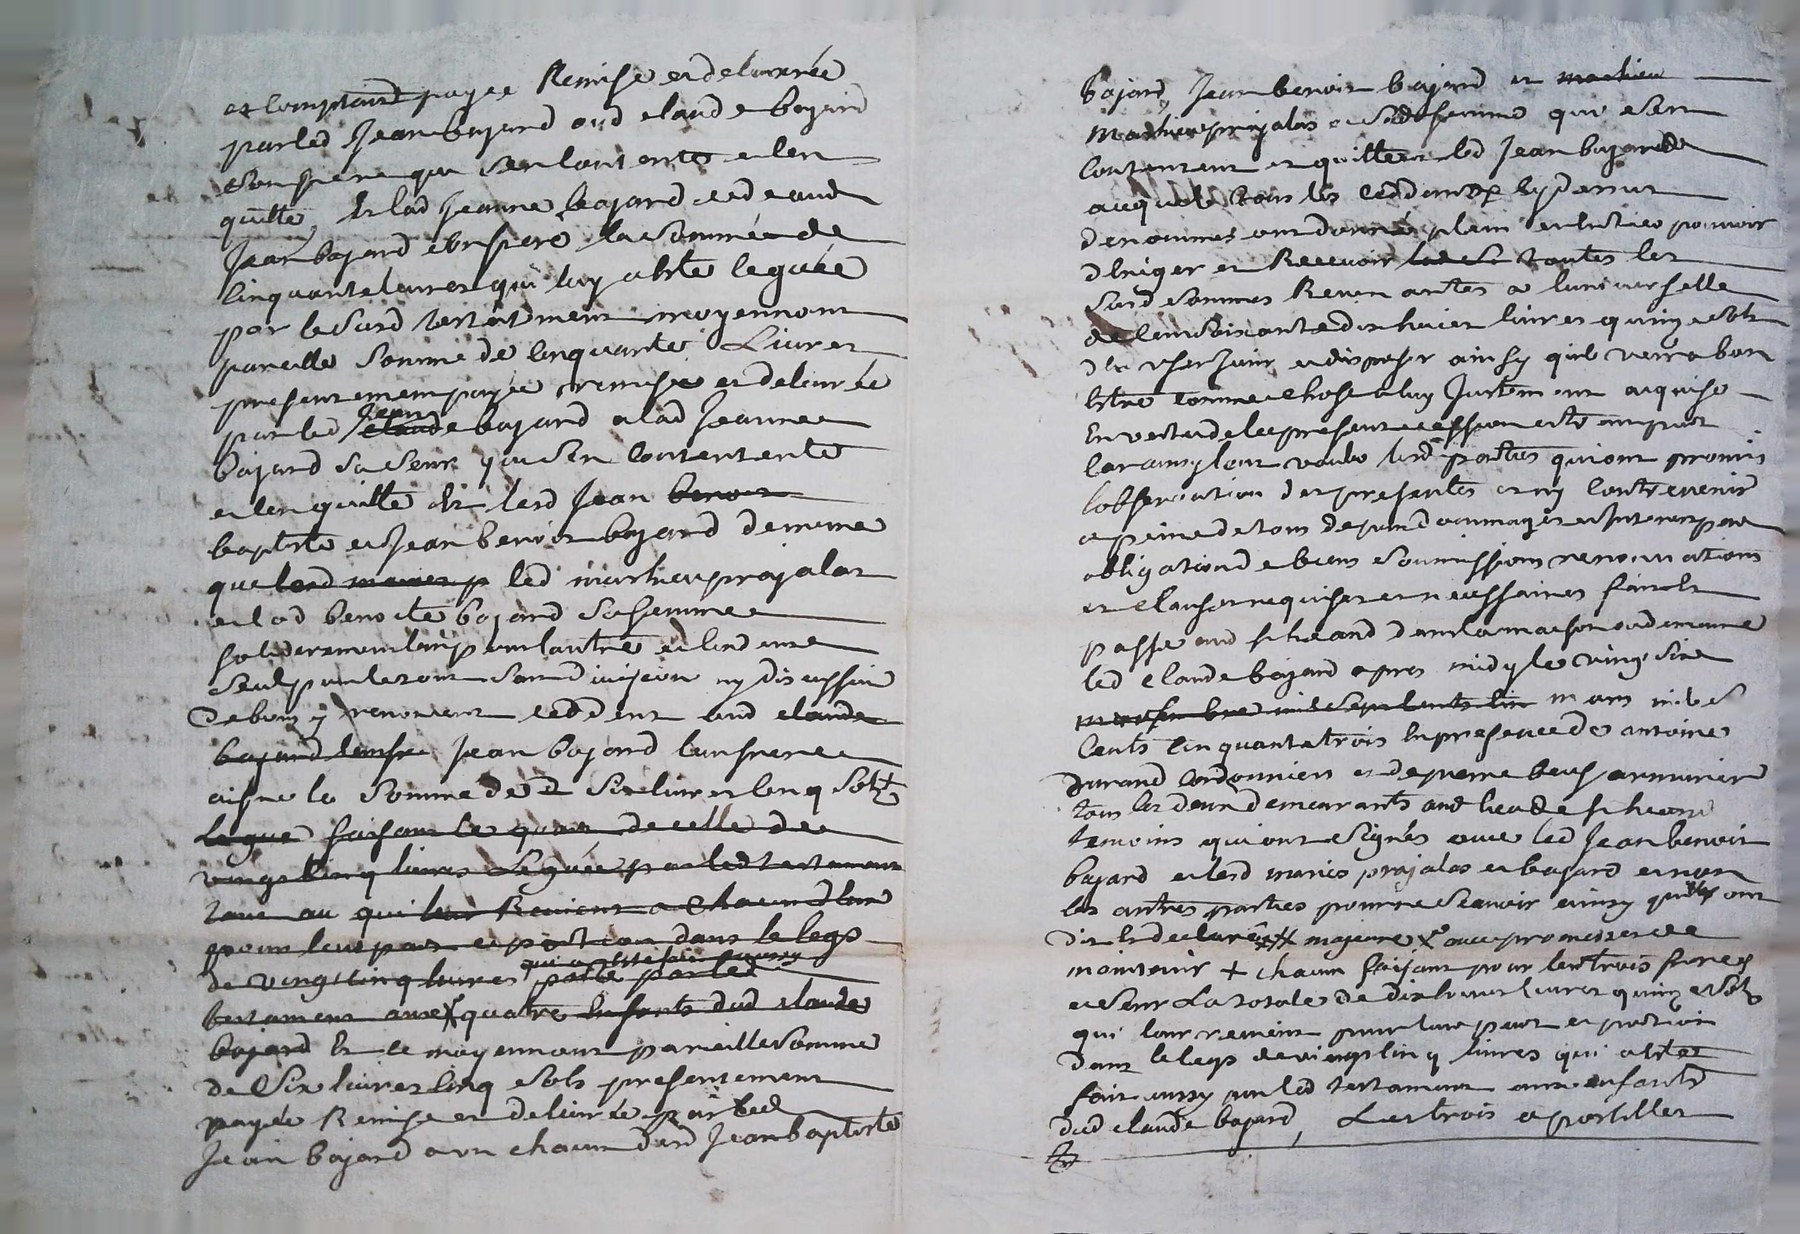 et comptant payee Remise et delivrée
par led Jean bajard aud claude bajard
son pere qui sen contente et len
quitte, et lad Jeanne bajard cede aud
Jean bajard son frere la somme de
cinquante livres qui luy a été leguée
par le susd testament moyennant
pareille somme de cinquante Livres
presentement payée remise et delivrée
par led Jean claude bajard a lad Jeanne
bajard sa seur qui sen contente
et len quitte et lesd Jean benoit
baptiste et Jean benoit bajard de meme
que lesd maries p led mathieu prajalas
et lad benoite bajard sa femme
solidairement lun pour lautre et lun deux
seul pour le tout sans division ny discussion
de biens y renoncent cedent aud claude
bajard leur fre Jean bajard leur frere
aisne la somme de six livres cinq sols
legue faisant le quart de celle de
vingt cinq livres Leguée par led testament
tant au qui leur Revient a chacun deux
pour leur part et portion dans le legs
qui a été fait aussy
de vingt cinq livres porté par led
testament aux quatre enfants dud claude
bajard et ce moyennant pareille somme
de six livres cinq sols presentement
payée Remise et delivrée par led
Jean bajard a un chacun desd Jean baptiste
bajard, Jean benoit bajard et mathieu
mathieu prajalas et sad femme qui sen
contentent et quittent led Jean bajard
auquel tous les cedants cy dessus
denommes ont donné plein et entier pouvoir
dexiger et Recevoir toutes les
susd sommes Revenantes a luniverselle
de cent soixante dix huit livres quinze sols
den user jouir et disposer ainsy quil verra bon
être comme chose a luy Justement acquise
En vertu de la presente cession et été
car ainsy lont voulu lesd parties qui ont promis
lobservation des presentes et ny contrevenir
a peine de tous depens dommages et Interets par
obligation de biens soumissions renonciations
et clauses requises et necessaires fait et
passe aud dans la maison ou demeure
led claude bajard apres midy le vingt six
mars mil sept
cents cinquante trois En presence de antoine
durand cordonnier et de pierre armurier
tous les deux demeurants aud lieu de
temoins qui ont signés avec led Jean benoit
bajard et lesd maries prajalas et bajard et non
les autres parties pour ne scavoir ainsy quelles ont
dit et declaré majeure avec promesse de
maintenir + chacun faisant pour les trois freres
et seur La totale de dix huit livres quinze sols
qui leur revient pour leur part et portion
dans le legs de vingt cinq livres qui a été
fait aussy par led testament aux enfants
dud claude bajard, Les trois apostilles